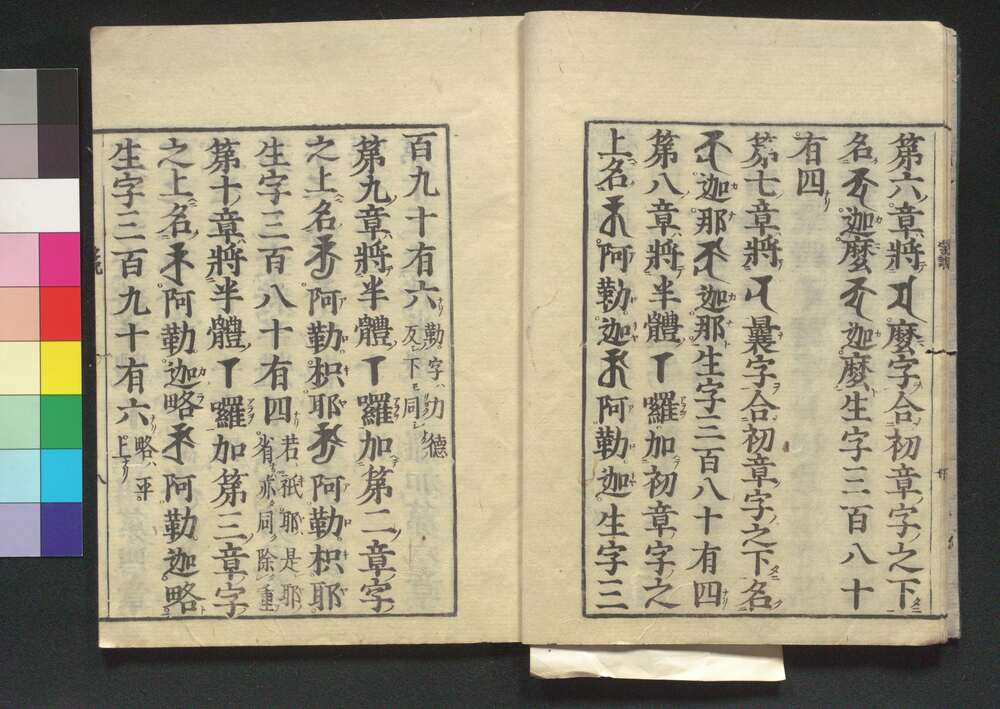 第六章將𑖦麼字合初章字之下
名𑖎𑖿𑖦迦麼𑖎𑖿𑖦𑖯迦麼生字三百八十
有四
第七章將𑖡曩字合初章字之下名
𑖎𑖿𑖡迦那𑖎𑖿𑖡𑖯迦那生字三百八十有四
第八章將半體囉加初章字之
上名𑖨𑖿𑖎阿勒迦𑖨𑖿𑖎𑖯阿勒迦生字三
百九十有六勒字力德
反下同
第九章將半體囉加第二章字
之上名𑖨𑖿𑖎𑖿𑖧阿勒枳耶𑖨𑖿𑖎𑖿𑖧𑖯阿勒枳耶
生字三百八十有四若祇耶是耶
省亦同除重
第十章將半體囉加第三章字
之上名𑖨𑖿𑖎𑖿𑖨阿勒迦略𑖨𑖿𑖎𑖿𑖨𑖯阿勒迦略
生字三百九十有六略平
上